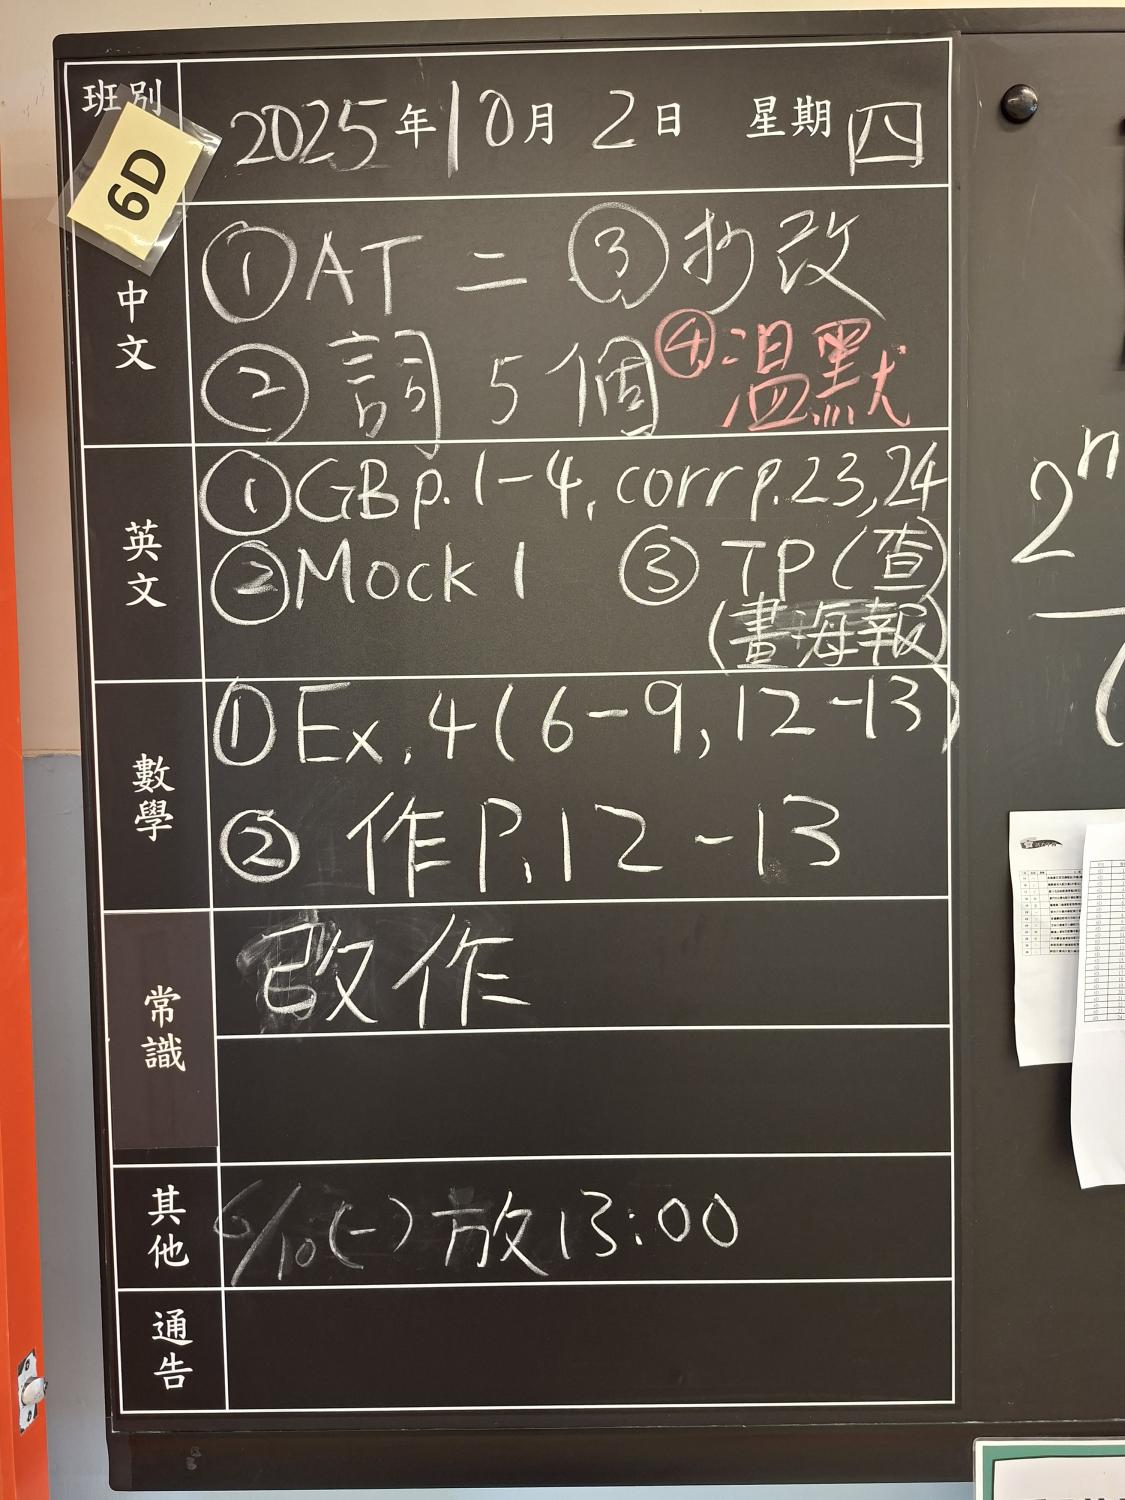 班別
6D
2025年10月2日 星期四
中文
①AT二 ③抄改
②詞5個 ④溫默
英文
①GB p.1-4, corr p.23,24
②Mock 1 ③TP(查)
(畫海報)
數學
①Ex.4(6-9,12-13)
②作P.12-13
常識
改作
其他
6/10(一)放13:00
通告
2ⁿ